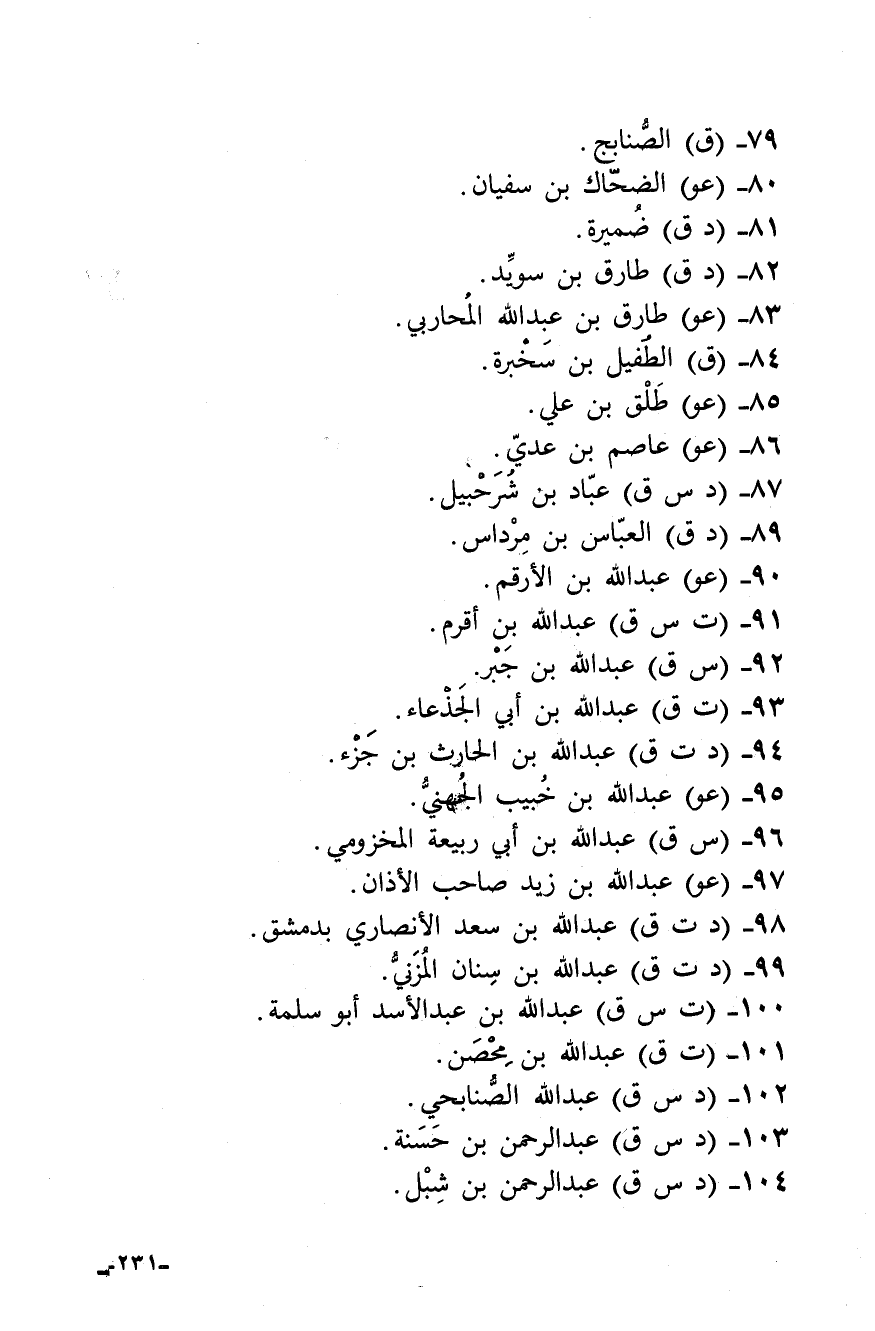 ٧٩ـ (ق) الصُّنابج.
٨٠ـ (عو) الضحّاك بن سفيان.
٨١ـ (د ق) ضُميرة.
٨٢ـ (د ق) طارق بن سويِّد.
٨٣ـ (عو) طارق بن عبدالله المُحاربي.
٨٤ـ (ق) الطُفيل بن سَخْبرة.
٨٥ـ (عو) طَلْق بن علي.
٨٦ـ (عو) عاصم بن عديّ.
٨٧ـ (د س ق) عبّاد بن شُرَحْبيل.
٨٩ـ (د ق) العبّاس بن مِرْداس.
٩٠ـ (عو) عبدالله بن الأرقم.
٩١ـ (ت س ق) عبدالله بن أقرم.
٩٢ـ (س ق) عبدالله بن جَبْر.
٩٣ـ (ت ق) عبدالله بن أبي الجَذْعاء.
٩٤ـ (د ت ق) عبدالله بن الحارث بن جَزْء.
٩٥ـ (عو) عبدالله بن خُبيب الجُهنيُّ.
٩٦ـ (س ق) عبدالله بن أبي ربيعة المخزومي.
٩٧ـ (عو) عبدالله بن زيد صاحب الأذان.
٩٨ـ (د ت ق) عبدالله بن سعد الأنصاري بدمشق.
٩٩ـ (د ت ق) عبدالله بن سِنان المُزَنيُّ.
١٠٠ـ (ت س ق) عبدالله بن عبدالأسد أبو سلمة.
١٠١ـ (ت ق) عبدالله بن مِحْصَن.
١٠٢ـ (د س ق) عبدالله الصُّنابحي.
١٠٣ـ (د س ق) عبدالرحمن بن حَسَنة.
١٠٤ـ (د س ق) عبدالرحمن بن شِبْل.
ـ٢٣١ـ